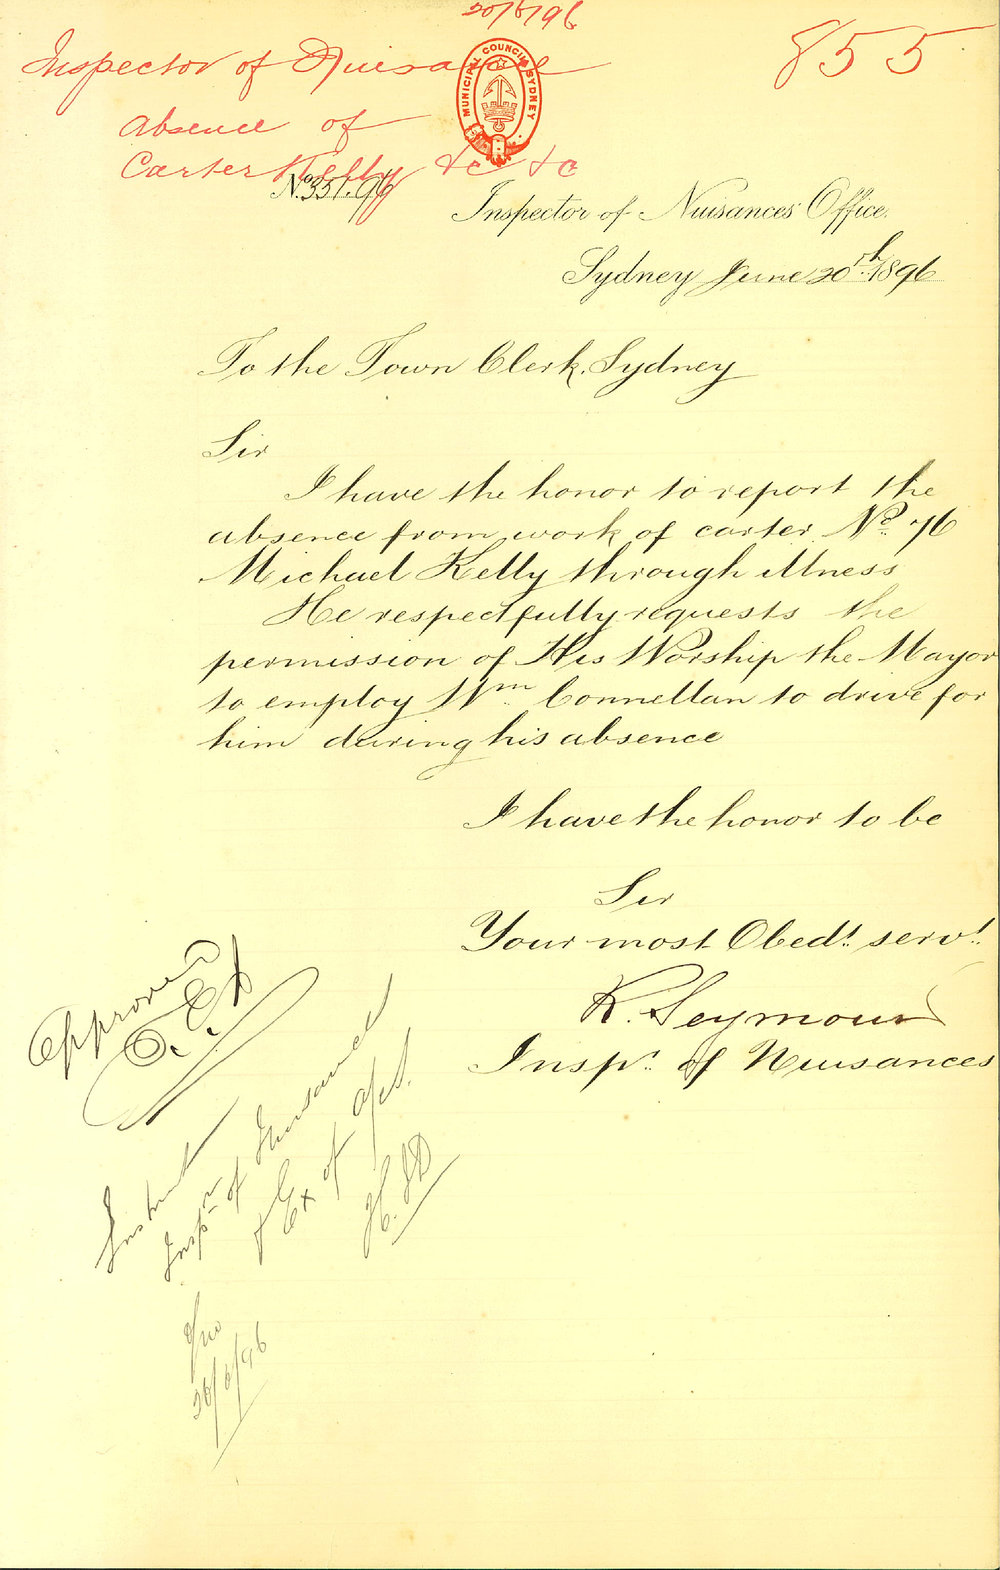 20/6/96
855
Inspector of Nuisance
MUNICIPAL COUNCIL SYDNEY
Absence of
Carter Kelly &c &c
No. 351.96
Inspector of Nuisances Office.
Sydney June 20th 1896
To the Town Clerk, Sydney
Sir
I have the honor to report the
absence from work of carter No. 76
Michael Kelly through illness
He respectfully requests the
permission of His Worship the Mayor
to employ Wm. Connellan to drive for
him during his absence
I have the honor to be
Sir
Your most Obedt. servt.
R. Seymour
Inspr. of Nuisances
Approved
Instruct
Inspr. of Nuisances
& Ex of a/cs.
H.
26/6/96